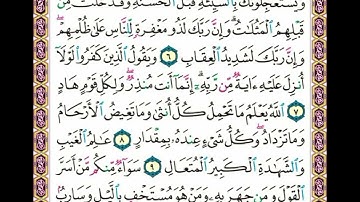 وَيَسْتَعْجِلُونَكَ بِٱلسَّيِّئَةِ قَبْلَ ٱلْحَسَنَةِ وَقَدْ خَلَتْ مِن
قَبْلِهِمُ ٱلْمَثُلَٰتُ ۗ وَإِنَّ رَبَّكَ لَذُو مَغْفِرَةٍ لِّلنَّاسِ عَلَىٰ ظُلْمِهِمْ ۖ
وَإِنَّ رَبَّكَ لَشَدِيدُ ٱلْعِقَابِ ٦ وَيَقُولُ ٱلَّذِينَ كَفَرُوا۟ لَوْلَآ
أُنزِلَ عَلَيْهِ ءَايَةٌ مِّن رَّبِّهِۦٓ ۗ إِنَّمَآ أَنتَ مُنذِرٌ ۖ وَلِكُلِّ قَوْمٍ هَادٍ
٧ ٱللَّهُ يَعْلَمُ مَا تَحْمِلُ كُلُّ أُنثَىٰ وَمَا تَغِيضُ ٱلْأَرْحَامُ
وَمَا تَزْدَادُ ۖ وَكُلُّ شَىْءٍ عِندَهُۥ بِمِقْدَارٍ ٨ عَٰلِمُ ٱلْغَيْبِ
وَٱلشَّهَٰدَةِ ٱلْكَبِيرُ ٱلْمُتَعَالِ ٩ سَوَآءٌ مِّنكُم مَّنْ أَسَرَّ
ٱلْقَوْلَ وَمَن جَهَرَ بِهِۦ وَمَنْ هُوَ مُسْتَخْفٍۭ بِٱلَّيْلِ وَسَارِبٌۢ